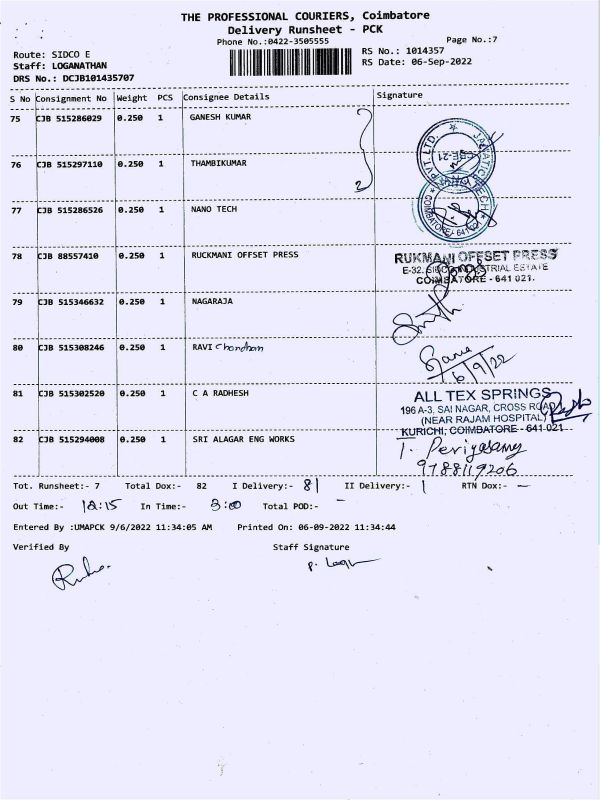 THE PROFESSIONAL COURIERS, Coimbatore
Delivery Runsheet - PCK
Phone No.:0422-3505555
Page No.:7
Route: SIDCO E
RS No.: 1014357
Staff: LOGANATHAN
RS Date: 06-Sep-2022
DRS No.: DCJB101435707
S No Consignment No Weight PCS Consignee Details Signature
75 CJB 515286029 0.250 1 GANESH KUMAR
76 CJB 515297110 0.250 1 THAMBIKUMAR
2
77 CJB 515286526 0.250 1 NANO TECH
COIMBATORE - 641 021
78 CJB 88557410 0.250 1 RUCKMANI OFFSET PRESS
RUKMANI OFFSET PRESS
E-32, SIDCO INDUSTRIAL ESTATE
COIMBATORE - 641 021.
79 CJB 515346632 0.250 1 NAGARAJA
80 CJB 515308246 0.250 1 RAVI Chandran
6/9/22
81 CJB 515302520 0.250 1 C A RADHESH
ALL TEX SPRINGS
196 A-3, SAI NAGAR, CROSS ROAD
(NEAR RAJAM HOSPITAL)
KURICHI, COIMBATORE - 641 021
82 CJB 515294008 0.250 1 SRI ALAGAR ENG WORKS
T. Periyasamy
9788119206
Tot. Runsheet:- 7 Total Dox:- 82 I Delivery:- 81 II Delivery:- 1 RTN Dox:- -
Out Time:- 12:15 In Time:- 3:00 Total POD:- -
Entered By :UMAPCK 9/6/2022 11:34:05 AM Printed On: 06-09-2022 11:34:44
Verified By Staff Signature